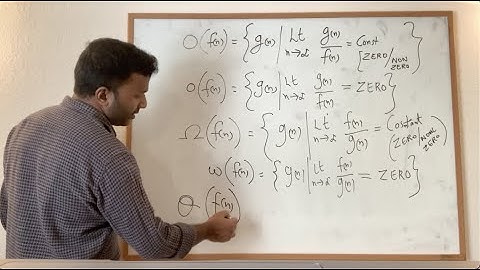 O(f(n)) = { g(n) | Lt n→∝ g(n)/f(n) = Const [ZERO/NON ZERO] }
o(f(n)) = { g(n) | Lt n→∝ g(n)/f(n) = ZERO }
Ω(f(n)) = { g(n) | Lt n→∝ f(n)/g(n) = Costant (ZERO/NON ZERO) }
ω(f(n)) = { g(n) | Lt n→∝ f(n)/g(n) = ZERO }
Θ(f(n))